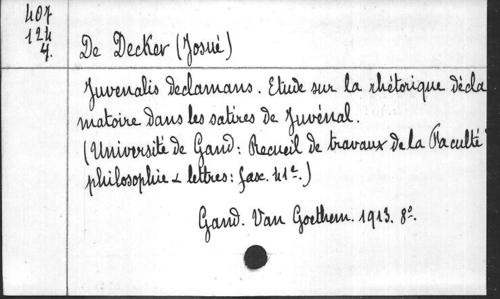 407
124
4.
De Decker (Josué)
Juvenalis declamans. Etude sur la rhétorique décla
matoire dans les satires de Juvénal.
(Université de Gand: Recueil de travaux de la Faculté
philosophie & lettres: fasc. 41e.)
Gand. Van Goethem. 1913. 8o.